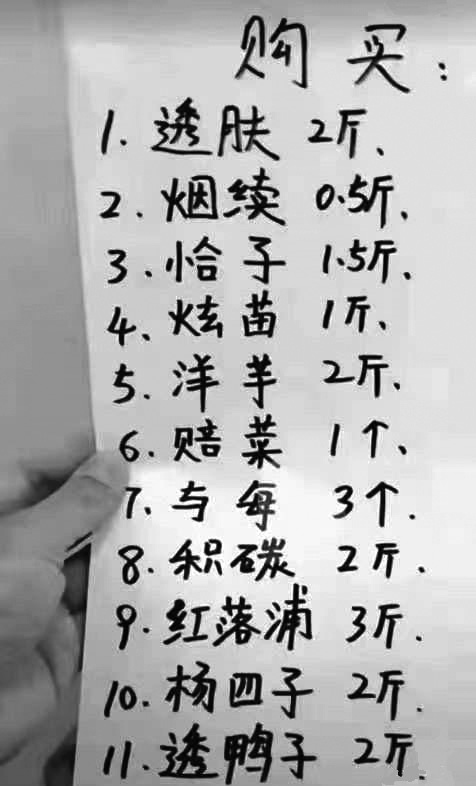 购买:
1. 透肤 2斤、
2. 烟续 0.5斤、
3. 恰子 1.5斤、
4. 炫苗 1斤、
5. 洋芋 2斤、
6. 赔菜 1个、
7. 与每 3个.
8. 积碳 2斤.
9. 红落浦 3斤.
10. 杨四子 2斤.
11. 透鸭子 2斤.